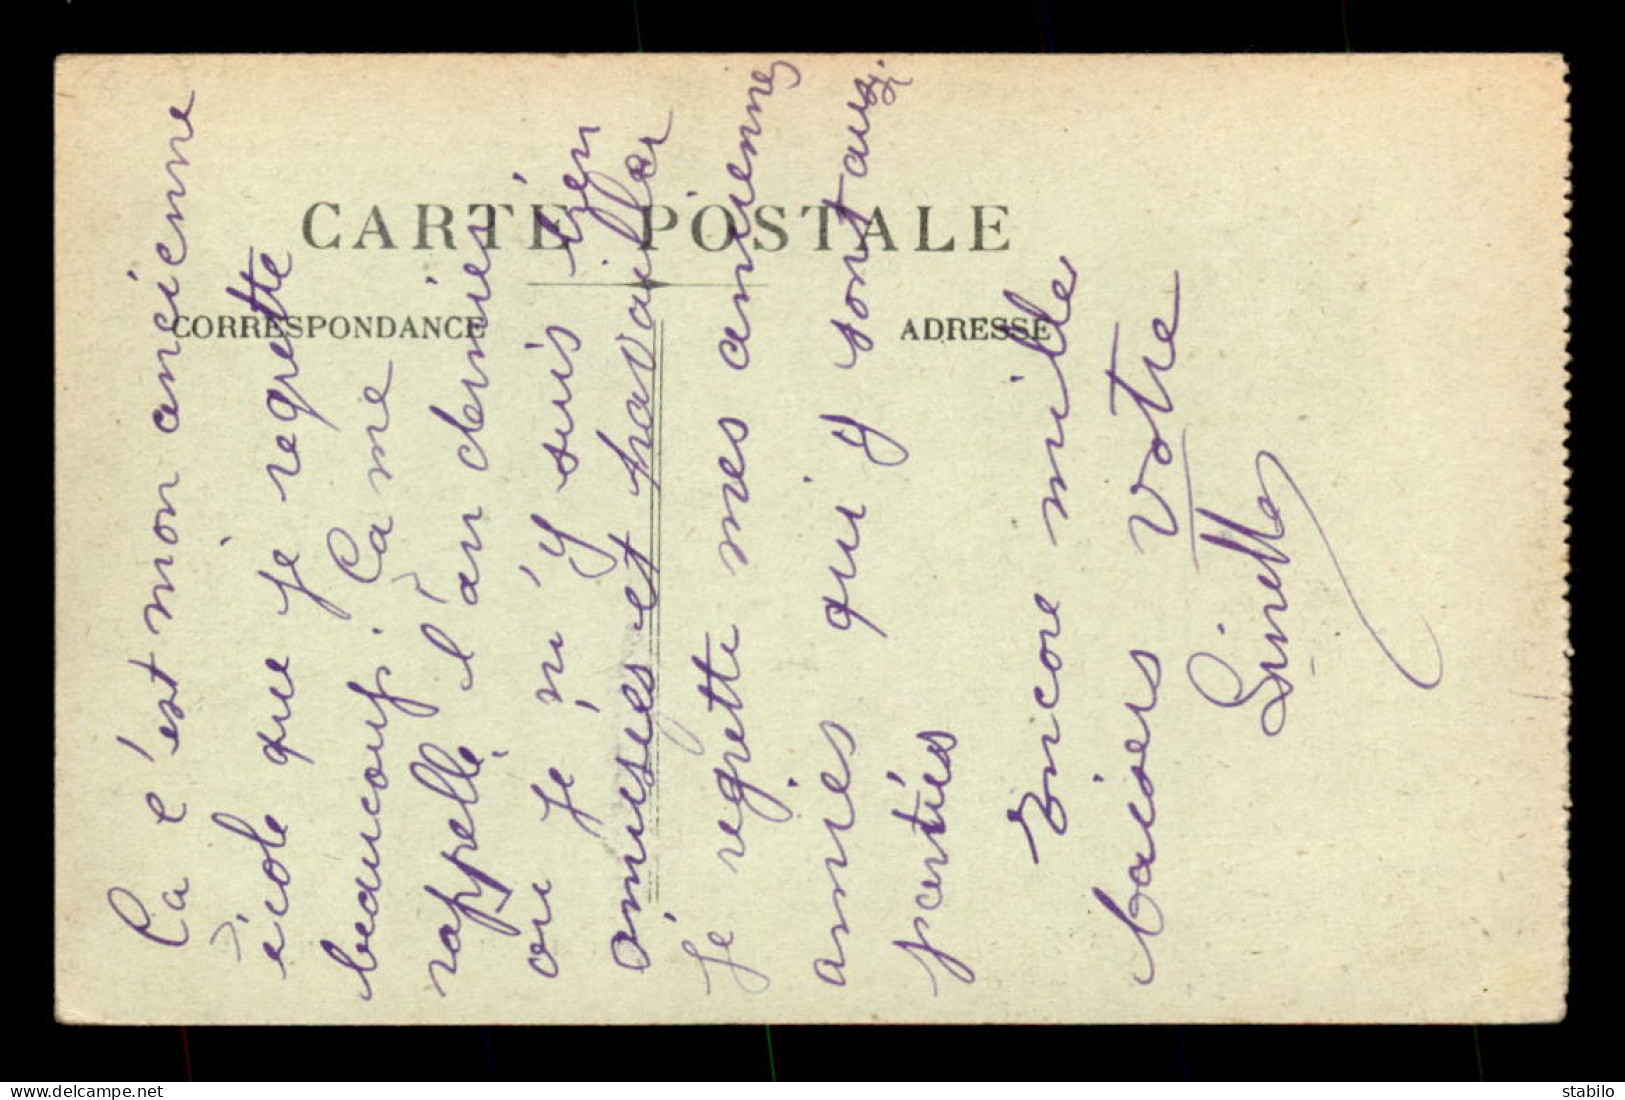 CARTE POSTALE
CORRESPONDANCE
ADRESSE
Ça c'est mon ancienne
école que je regrette
beaucoup. Ça me
rappelle l'an dernier
ou je m'y suis bien
amusées et travailler
Je regrette mes anciennes
amies qui y sont aussi.
parties
Encore mille
baisers votre
Linette
delcampe.net
stabilo